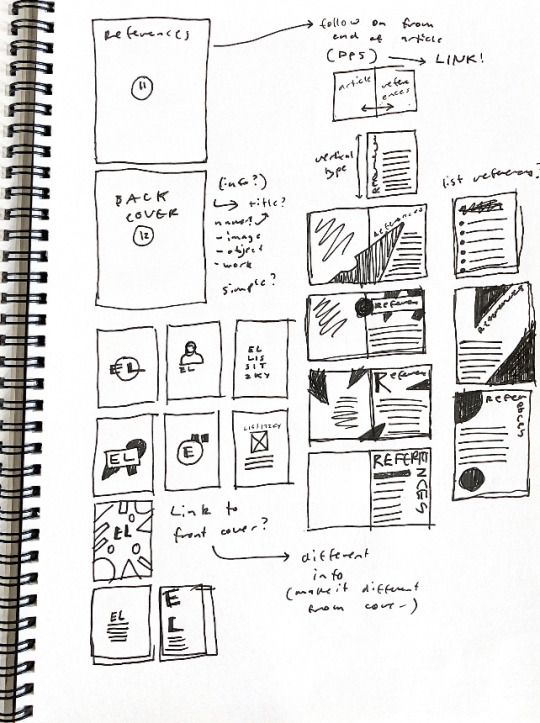 References
11
follow on from
end of article
(DPS)
LINK!
article
refer
ences
vertical
type
BACK
COVER
12
(info?)
title?
name?
- image
- object
- work
simple?
list references?
REFERENCES
References
References
References
REFERENCES
REFERENCES
REFERENCES
EL
EL
EL
LIS
SIT
ZKY
EL
E
LISSITZKY
EL
Link to
front cover?
different
info
(make it different
from cover)
EL
E
L